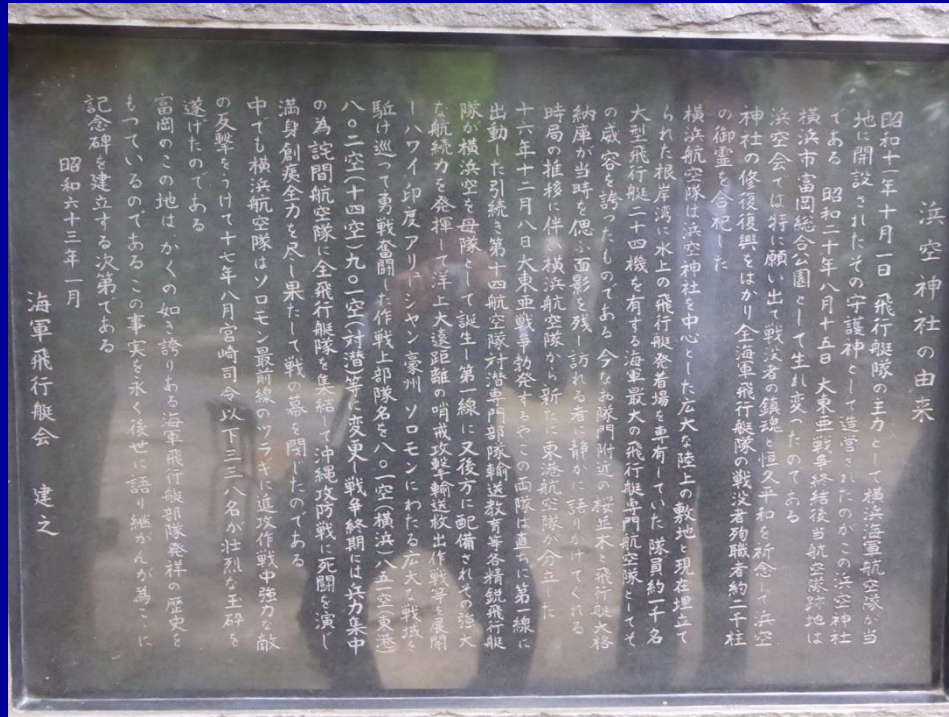 浜空神社の由来
昭和十一年十月一日 飛行艇隊の主力として横浜海軍航空隊が当
地に開設されたその守護神として造営されたのがこの浜空神社
である 昭和二十年八月十五日 大東亜戦争終結後当航空隊跡地は
横浜市富岡総合公園として生れ変ったのである
浜空会では特に願い出て戦没者の鎮魂と恒久平和を祈念して浜空
神社の修復復興をはかり全海軍飛行艇隊の戦没者殉職者約二千柱
の御霊を合祀した
横浜航空隊は浜空神社を中心とした広大な陸上の敷地と現在埋立て
られた根岸湾に水上の飛行艇発着場を専有していた隊員約一千名
大型飛行艇二十四機を有する海軍最大の飛行艇専門航空隊としてそ
の威容を誇ったものである 今なお隊門附近の桜並木と飛行艇大格
納庫が当時を偲ぶ面影を残し訪れる者に静かに語りかけてくれる
時局の推移に伴い横浜航空隊から新たに東港航空隊が分立した
十六年十二月八日大東亜戦争勃発するやこの両隊は直ちに第一線に
出動した引続き第十四航空隊対潜専門部隊輸送教育等各精鋭飛行艇
隊が横浜空を母隊として誕生し第一線に又後方に配備されその強大
な航続力を発揮して洋上大遠距離の哨戒攻撃輸送救出作戦等を展開
しハワイ印度アリューシャン豪州ソロモンにわたる広大な戦域を
駈け巡って勇戦奮闘した作戦上部隊名を八〇一空(横浜)八五一空(東港)
八〇二空(十四空)九〇一空(対潜)等に変更し戦争終期には兵力集中
の為詫間航空隊に全飛行艇隊を集結して沖縄攻防戦に死闘を演じ
満身創痍全力を尽し果たして戦の幕を閉じたのである
中でも横浜航空隊はソロモン最前線のツラギに進攻作戦中強力な敵
の反撃をうけて十七年八月宮崎司令以下三三八名が壮烈な玉砕を
遂げたのである
富岡のこの地はかくの如き誇りある海軍飛行艇部隊発祥の歴史を
もつているのであるこの事実を永く後世に語り継がんが為ここに
記念碑を建立する次第である
昭和六十三年一月
海軍飛行艇会 建之